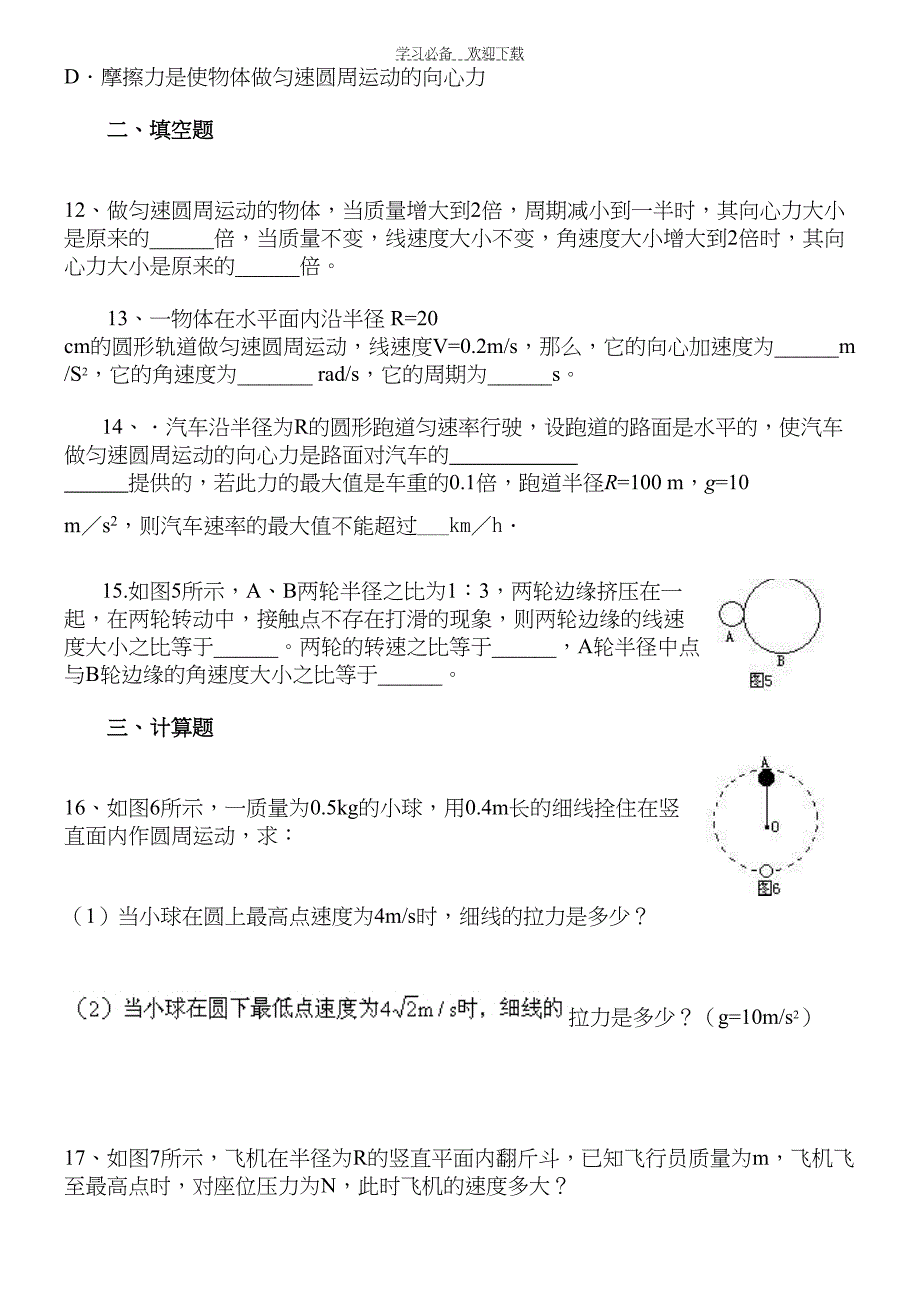 学习必备 欢迎下载
D．摩擦力是使物体做匀速圆周运动的向心力
二、填空题
12、做匀速圆周运动的物体，当质量增大到2倍，周期减小到一半时，其向心力大小
是原来的______倍，当质量不变，线速度大小不变，角速度大小增大到2倍时，其向
心力大小是原来的______倍。
13、一物体在水平面内沿半径 R=20
cm的圆形轨道做匀速圆周运动，线速度V=0.2m/s，那么，它的向心加速度为______m
/S²，它的角速度为_______ rad/s，它的周期为______s。
14、．汽车沿半径为R的圆形跑道匀速率行驶，设跑道的路面是水平的，使汽车
做匀速圆周运动的向心力是路面对汽车的____________
______提供的，若此力的最大值是车重的0.1倍，跑道半径R=100 m，g=10
m／s²，则汽车速率的最大值不能超过___km／h．
15.如图5所示，A、B两轮半径之比为1：3，两轮边缘挤压在一
起，在两轮转动中，接触点不存在打滑的现象，则两轮边缘的线速
度大小之比等于______。两轮的转速之比等于______，A轮半径中点
与B轮边缘的角速度大小之比等于______。
A
B
图5
三、计算题
16、如图6所示，一质量为0.5kg的小球，用0.4m长的细线拴住在竖
直面内作圆周运动，求：
A
O
图6
（1）当小球在圆上最高点速度为4m/s时，细线的拉力是多少？
（2）当小球在圆下最低点速度为4√2m/s时，细线的拉力是多少？（g=10m/s²）
17、如图7所示，飞机在半径为R的竖直平面内翻斤斗，已知飞行员质量为m，飞机飞
至最高点时，对座位压力为N，此时飞机的速度多大？